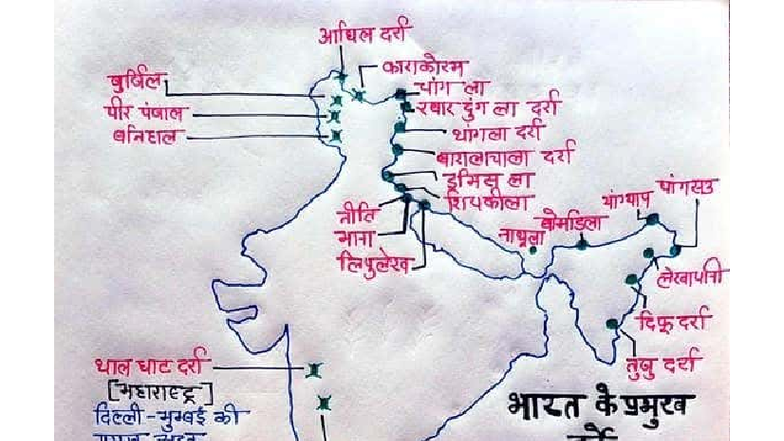 अघिल दर्रा
काराकोरम
बुर्जिल
चांग ला
पीर पंजाल
खार दुंग ला दर्रा
बनिहाल
थांगला दर्रा
बारालाचाला दर्रा
ला
शिपकीला
नीति
माना
लिपुलेख
नाथूला
बोमडिला
यांग्याप
पांगसउ
लेखापानी
दिफू दर्रा
तुजु दर्रा
थाल घाट दर्रा
[महाराष्ट्र]
दिल्ली-मुम्बई की
भारत के प्रमुख
दर्रे